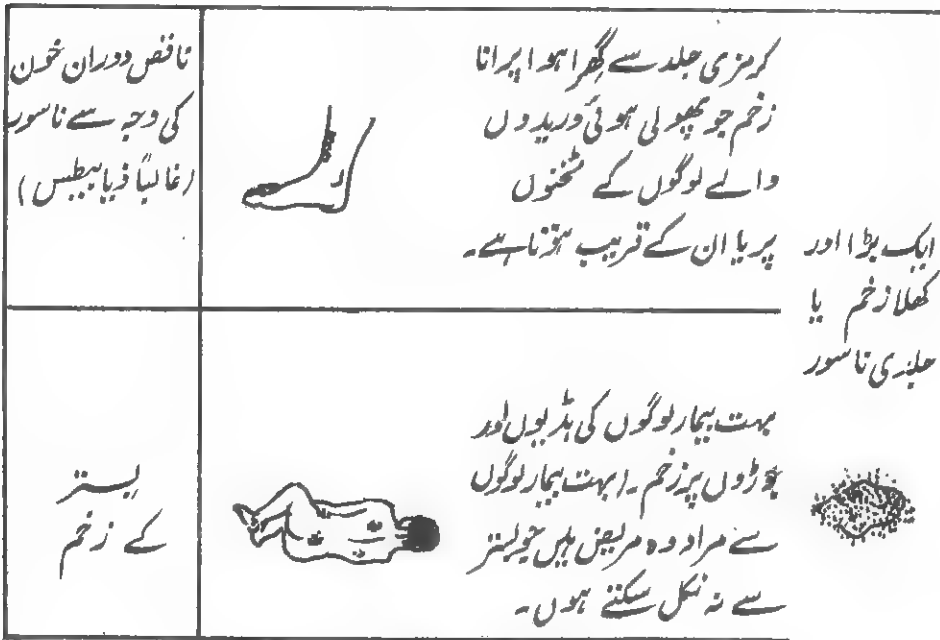 ایک بڑا اور
کھلا زخم یا
جلدی ناسور
کرمزی جلد سے گھرا ہوا پرانا
زخم جو پھولی ہوئی وریدوں
والے لوگوں کے ٹخنوں
پر یا ان کے قریب ہوتا ہے۔
ناقص دوران خون
کی وجہ سے ناسور
(غالباً ذیابیطس)
بہت بیمار لوگوں کی ہڈیوں اور
جوڑوں پر زخم۔ (بہت بیمار لوگوں
سے مراد وہ مریض ہیں جو بستر
سے نہ نکل سکتے ہوں۔
بِستر
کے زخم